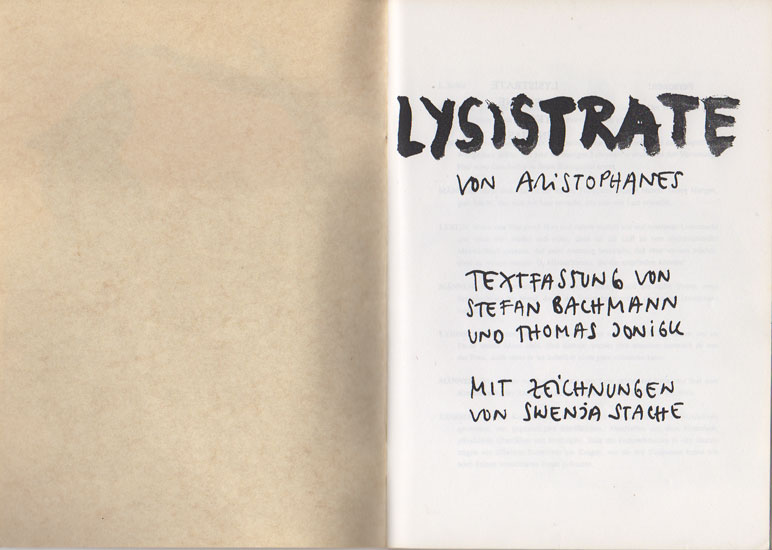 LYSISTRATE
VON ARISTOPHANES
TEXTFASSUNG VON
STEFAN BACHMANN
UND THOMAS JONIGK
MIT ZEICHNUNGEN
VON SWENJA STACHE